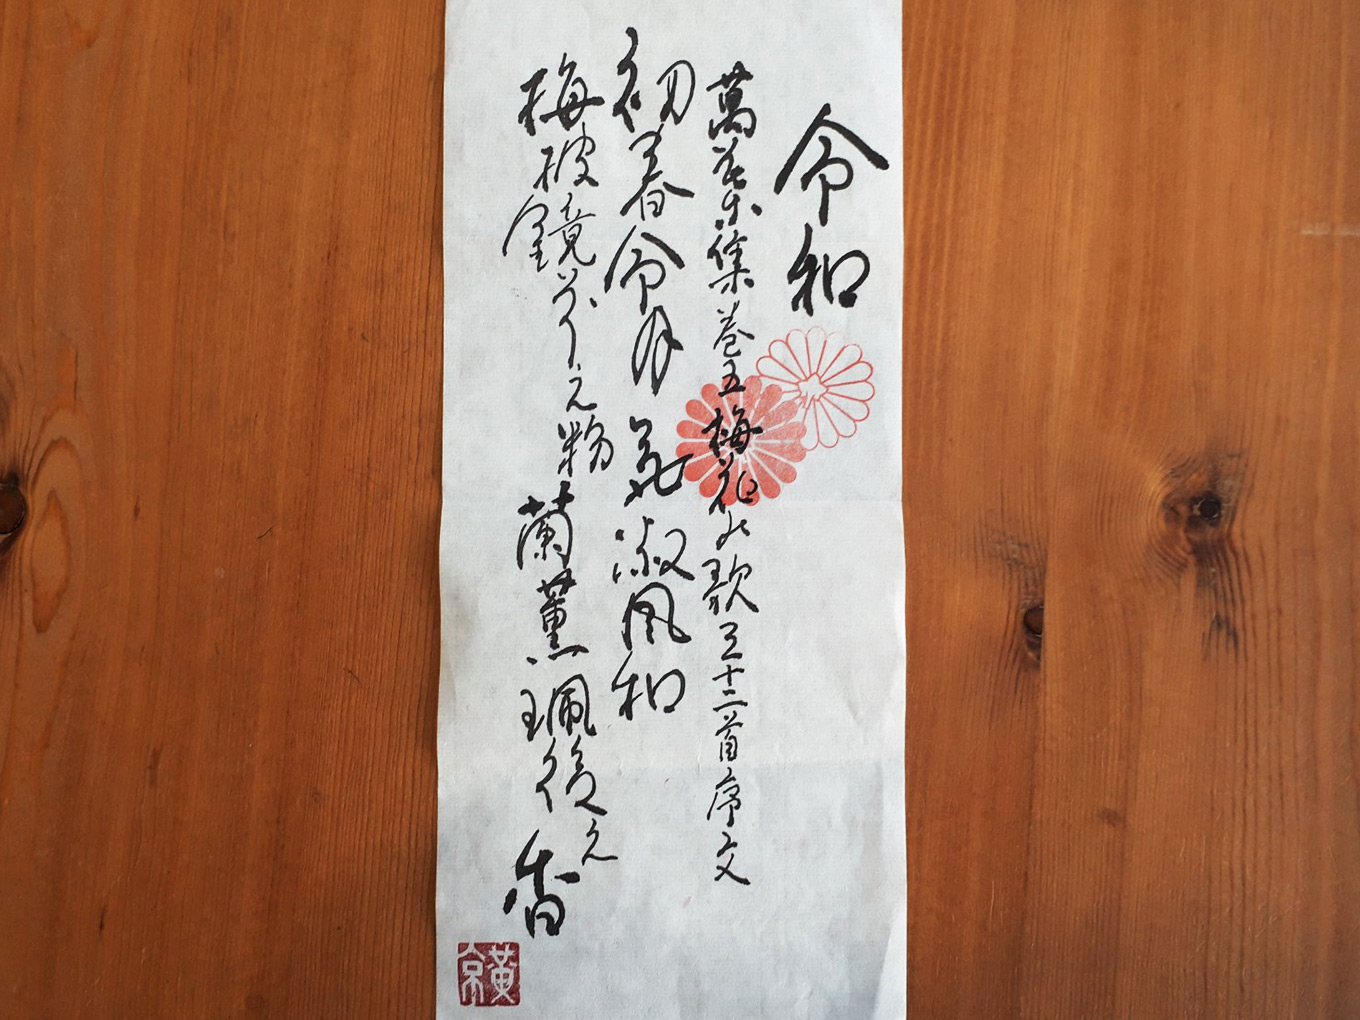 令和
萬葉集巻五梅花の歌三十二首序文
初春令月気淑風和
梅披鏡前之粉蘭薫珮後之香